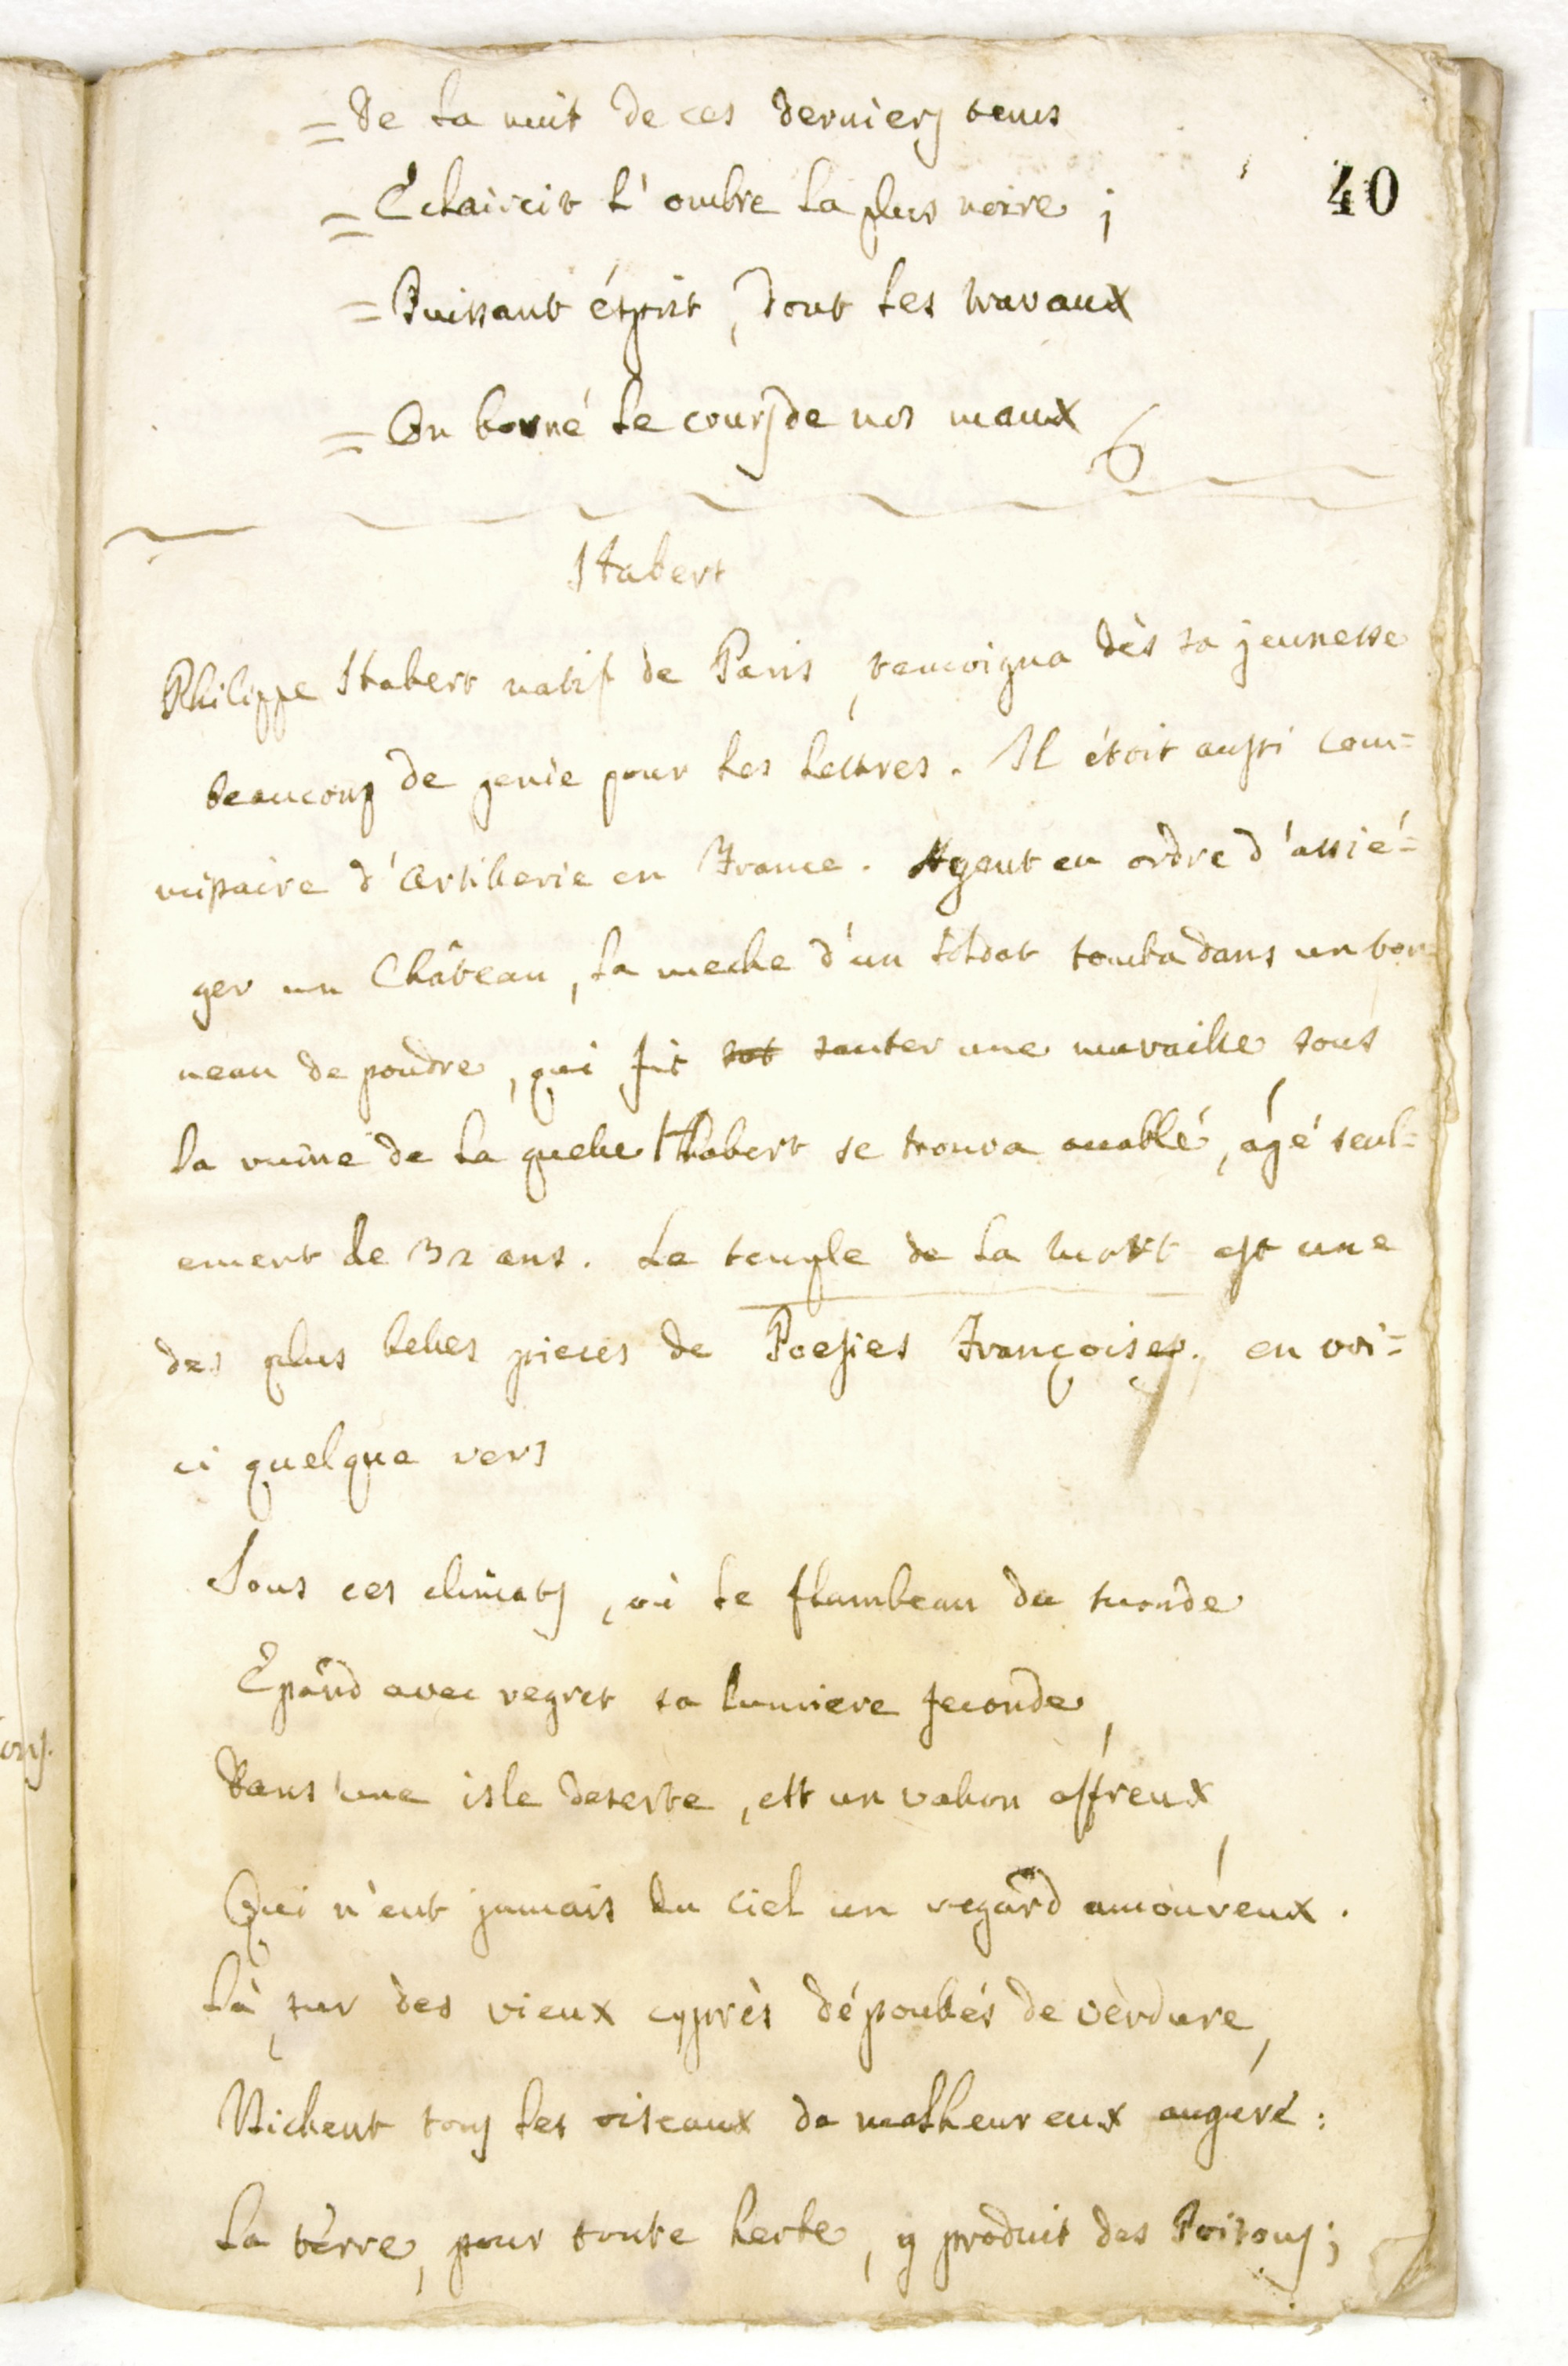 = De la nuit de ces derniers tems
= Eclaircit l'ombre la plus noire ;
40
= Puissant ésprit, dont les travaux
= On borné le cours de nos maux
Habert
Philippe Habert natif de Paris, temoigna dès sa jeunesse
beaucoup de genie pour les lettres. Il étoit aussi com=
missaire d'Artillerie en France. Ayant eu ordre d'assié=
ger un Château, la meche d'un soldat tomba dans un ton=
neau de poudre, qui fit sauter une muraille, sous
la ruine de la quelle Habert se trouva accablé, agé seul=
ement de 32 ans. Le temple de la mort est une
des plus belles pieces de Poesies Françoises. en voi=
ci quelque vers
Sous ces climats, où le flambeau du monde
Epand avec regret sa lumiere feconde,
Dans une isle deserte, ett un vallon affreux,
Qui n'eut jamais du ciel un regard amoureux.
Là, sur des vieux cyprès dépoullés de verdure,
Nichent tous les oiseaux de malheureux augure :
La terre, pour toute herbe, y produit des Poisons ;
ons.